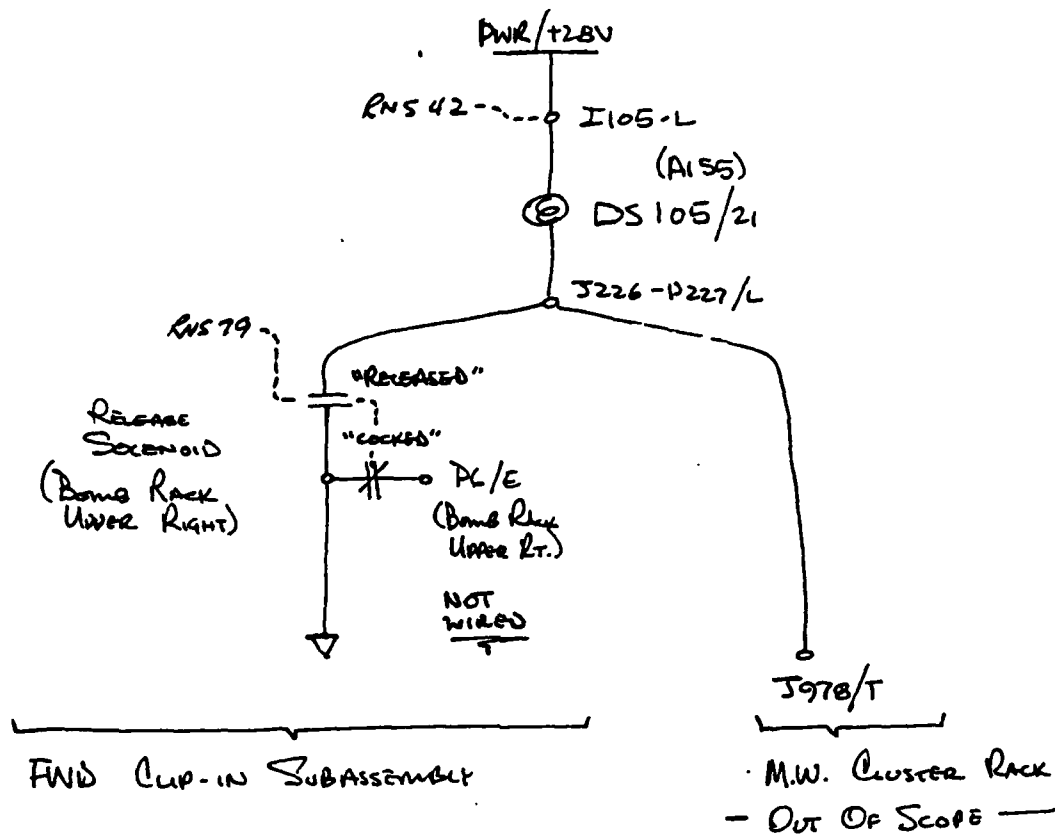 PWR/+28V
RNS 42
I105-L
(A155)
DS105/21
J226-P227/L
RNS 79
"RELEASED"
RELEASE
SOLENOID
(BOMB RACK
UPPER RIGHT)
"COCKED"
PL/E
(BOMB RACK
UPPER RT.)
NOT
WIRED
J978/T
FWD CLIP-IN SUBASSEMBLY
M.W. CLUSTER RACK
- OUT OF SCOPE -